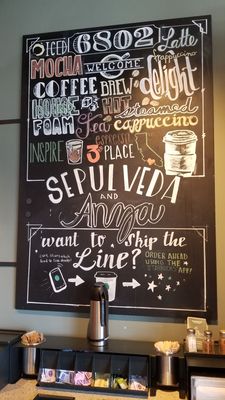 ICED! 6802 Latte
MOCHA WELCOME Frappuccino
COFFEE BREW delight
HOUSE OF HOT steamed
FOAM Tea cappuccino
INSPIRE espresso
3rd PLACE
SEPULVEDA
AND
Anza
want to Skip the
Line?
ORDER AHEAD
USING THE
STARBUCKS
APP!